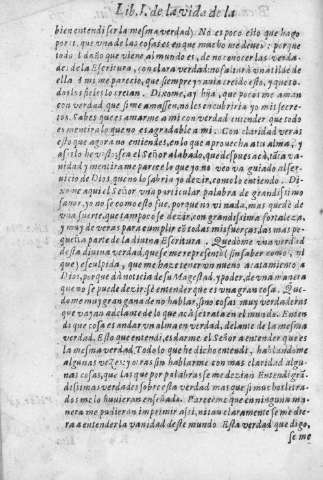 Lib. I. de la vida de la
bien entendi ser la mesma verdad) No es poco esto que hago
por ti, que vna de las cosas es en que mucho me deues: porque
todo el daño que viene al mundo es, de no conocer las verda-
des de la Escritura, con clara verdad: no faltará vna tilde de
ella. A mi me parecio, que siempre yo auia creido esto, y que to-
dos los fieles lo creian. Dixome, ay hija, que pocos me aman
con verdad que si me amassen, no les encubriria yo mis secre-
tos. Sabes que es amarme a mi con verdad entender que todo
es mentira lo que no es agradable a mi. Con claridad veras
esto que agora no entiendes, en lo que aprouecha a tu alma, y
assi lo he visto, sea el Señor alabado, que despues acà, tãta va-
nidad y mentira me parece lo que yo no veo va guiado al ser-
uicio de Dios, que no lo sabria yo dezir, como lo entiendo. Di-
xome aqui el Señor vna particular palabra de grandissimo
fauor. yo no se como esto fue, porque no vi nada, mas quedè de
vna suerte, que tampoco se dezir, con grandissima fortaleza,
y muy de veras para cumplir cõ todas mis fuerças, la mas pe-
queña parte de la diuina Escritura. Quedòme vna verdad
desta diuina verdad, que se me representò (sin saber como, ni
que) esculpida, que me haze tener vn nueuo acatamiento a
Dios, porque dà noticia de su Magestad, y poder, de vna manera
que no se puede dezir: sè entender que es vna gran cosa. Que-
dome muy gran gana de no hablar, sino cosas muy verdaderas
que vayan adelante de lo que acà se trata en el mundo. Enten
di que cosa es andar vn alma en verdad, delante de la mesma
verdad. Esto que entendi, es darme el Señor a entender que es
la mesma verdad, Todo lo que he dicho entendi, hablandome
algunas vezes, y otras sin hablarme con mas claridad algu-
nas cosas, que las que por palabras se me dezian Entendi grã-
dissimas verdades sobre esta verdad mas que si muchos letra-
dos me lo huuieran enseñado. Pareceme que en ninguna ma-
nera me pudieron imprimir assi, ni tan claramente se me die-
ra a entender la vanidad deste mundo. Esta verdad que digo,
se me